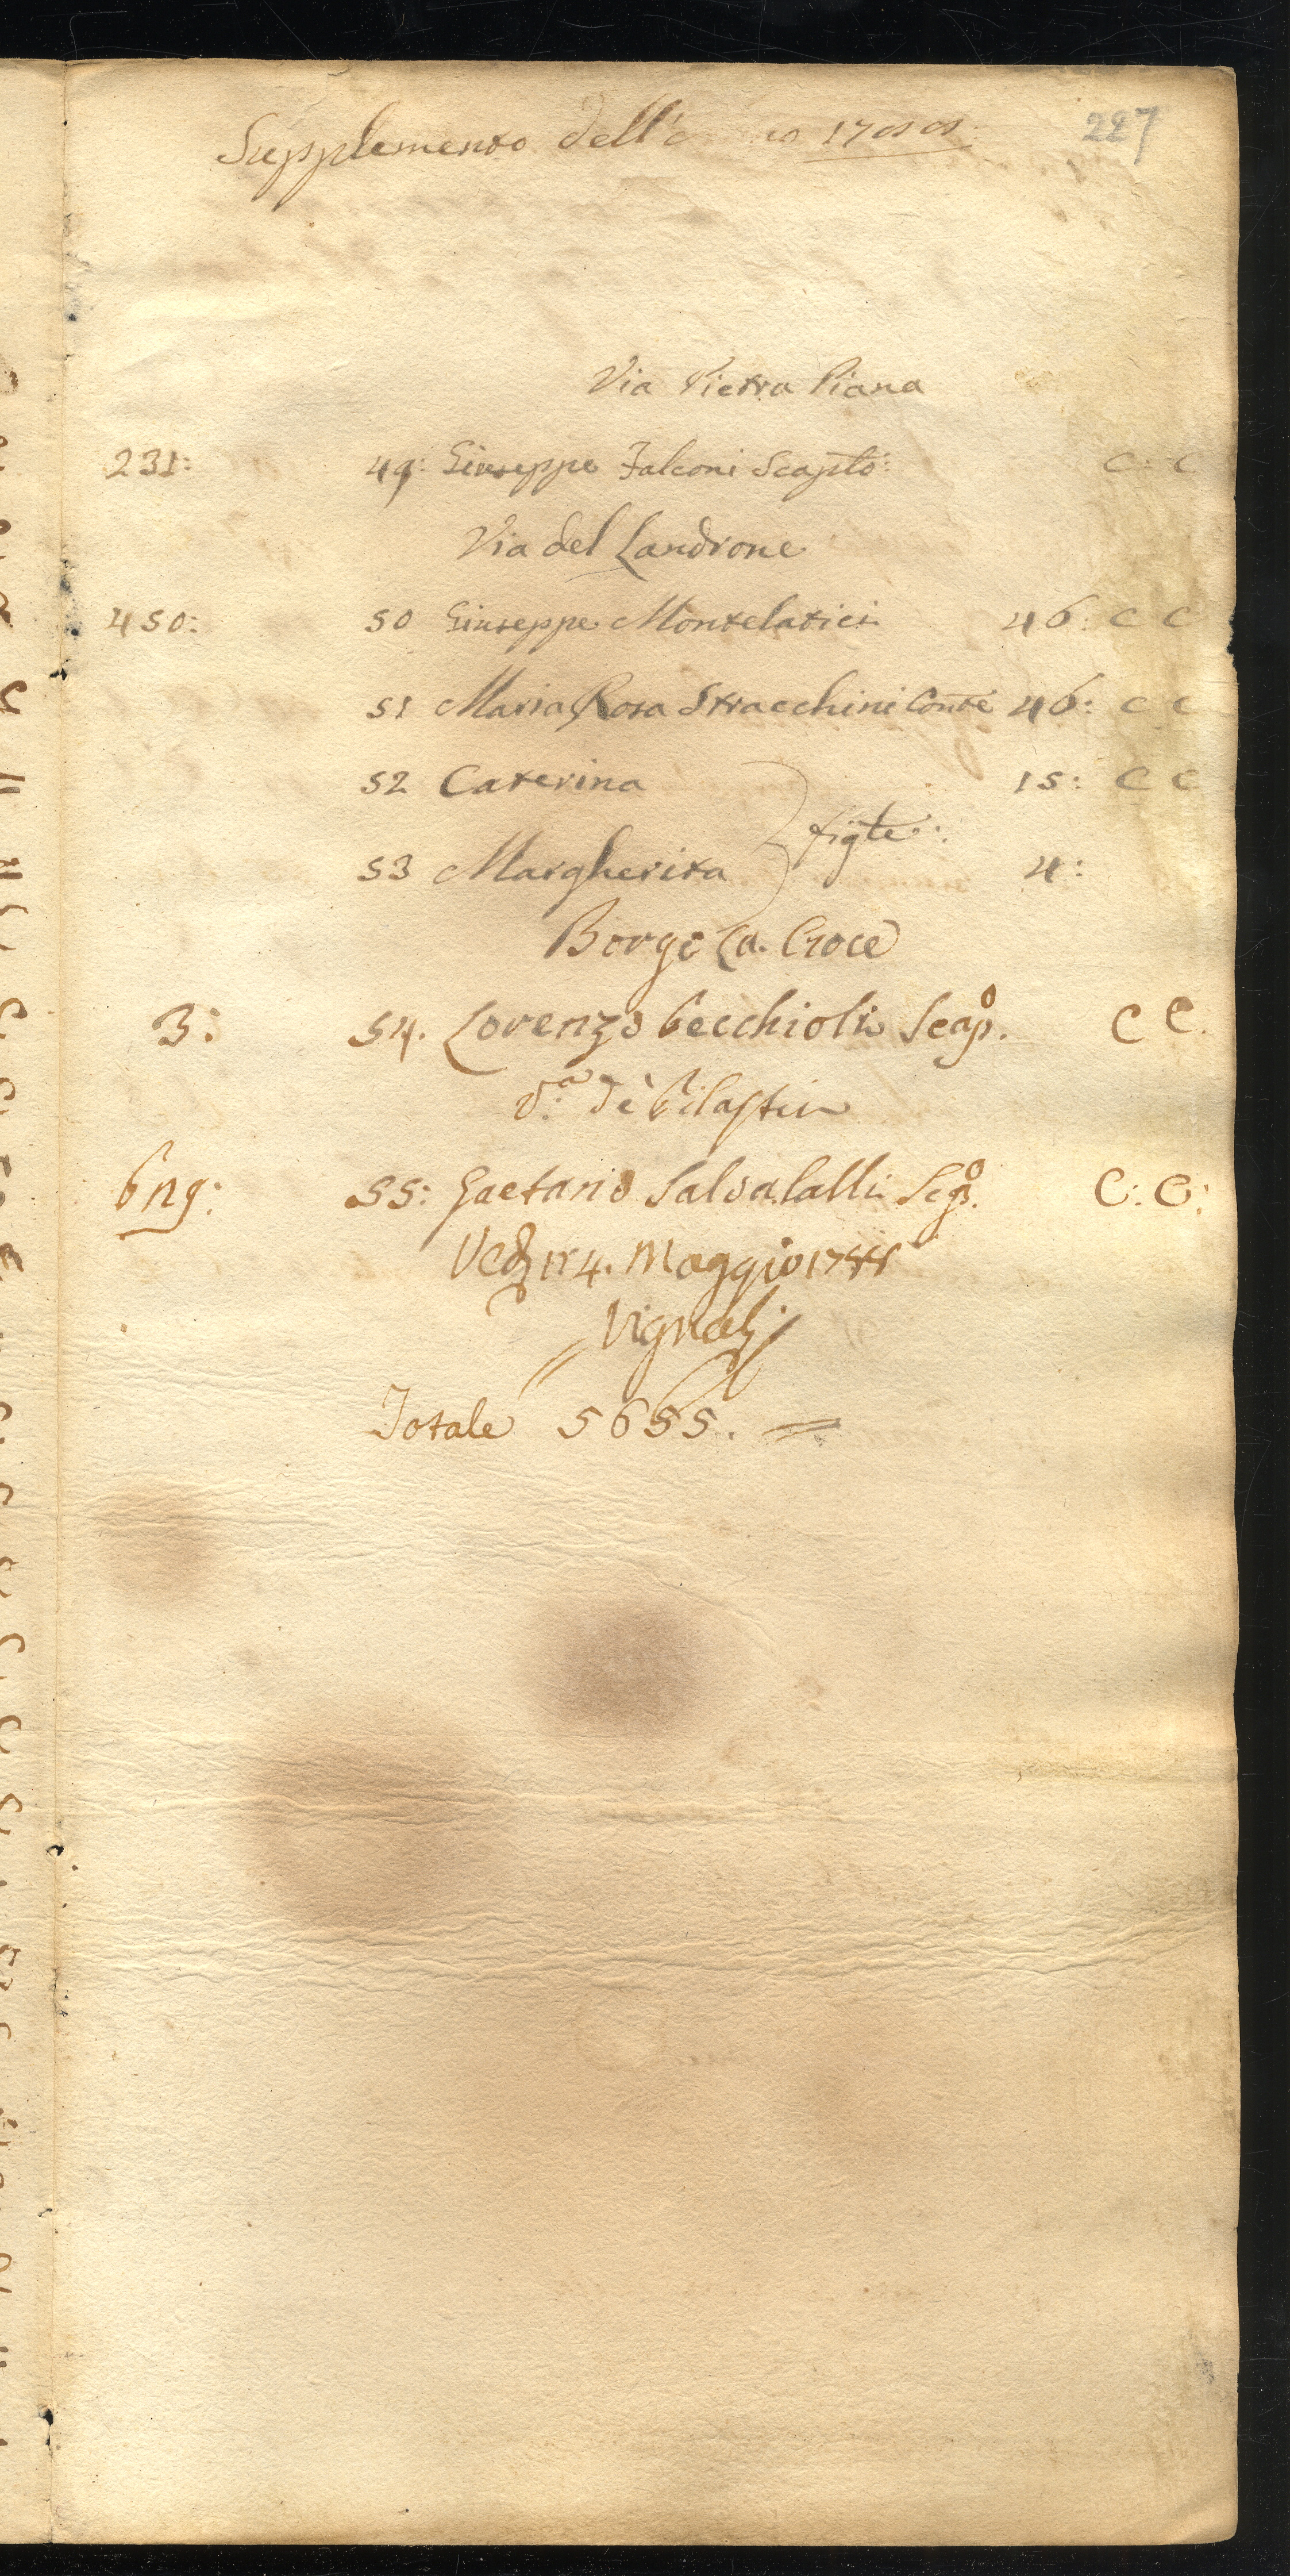 Supplemento dell' 1788.
227
Via Pietra Piana
231: 49: Giuseppe Falconi Scaplo: C: C
Via del Landrone
450: 50 Giuseppe Montelatici 46: C C
51 Maria Rosa Stracchini Conte 46: C C
52 Caterina 15: C C
figle:
53 Margherita 4:
Borgo La Croce
3: 54. Lorenzo Pecchioli Scapo. C C.
Va: de Pilastri
55: Gaetano Salvalalli Sgo. C: C:
14. Maggio 1788
Vignali
Totale 5655.